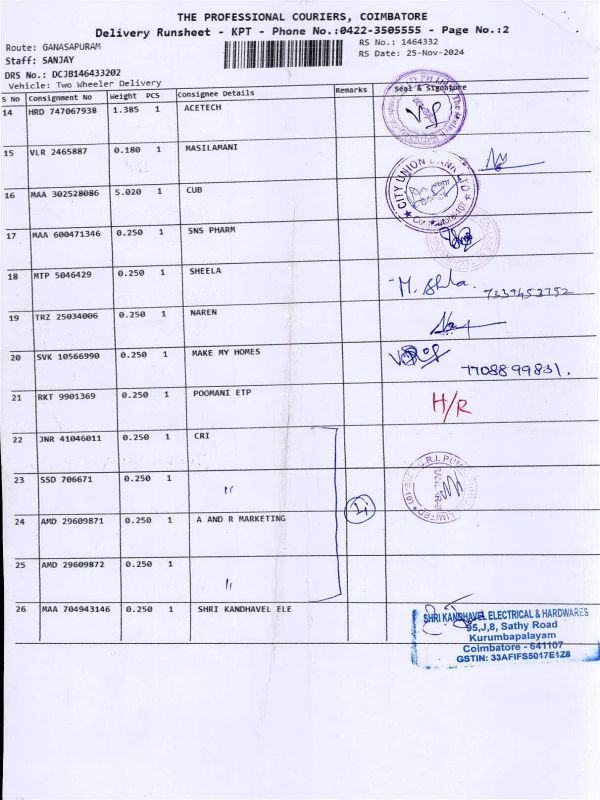 THE PROFESSIONAL COURIERS, COIMBATORE
Delivery Runsheet - KPT - Phone No.:0422-3505555 - Page No.:2
Route: GANASAPURAM
RS No.: 1464332
Staff: SANJAY
RS Date: 25-Nov-2024
DRS No.: DCJB146433202
Vehicle: Two Wheeler Delivery
S No Consignment No Weight PCS Consignee Details Remarks Seal & Signature
14 HRD 747067938 1.385 1 ACETECH
15 VLR 2465887 0.180 1 MASILAMANI
CITY UNION BANK LTD
16 MAA 302528086 5.020 1 CUB
17 MAA 600471346 0.250 1 SNS PHARM
18 MTP 5046429 0.250 1 SHEELA
7339453752
19 TRZ 25034006 0.250 1 NAREN
20 SVK 10566990 0.250 1 MAKE MY HOMES
7708899831.
21 RKT 9901369 0.250 1 POOMANI ETP H/R
22 JNR 41046011 0.250 1 CRI
23 SSD 706671 0.250 1 "
24 AMD 29609871 0.250 1 A AND R MARKETING
25 AMD 29609872 0.250 1 "
26 MAA 704943146 0.250 1 SHRI KANDHAVEL ELE
SHRI KANDHAVEL ELECTRICAL & HARDWARES
95,J,8, Sathy Road
Kurumbapalayam
Coimbatore - 641107
GSTIN: 33AFIFS5017E1Z8